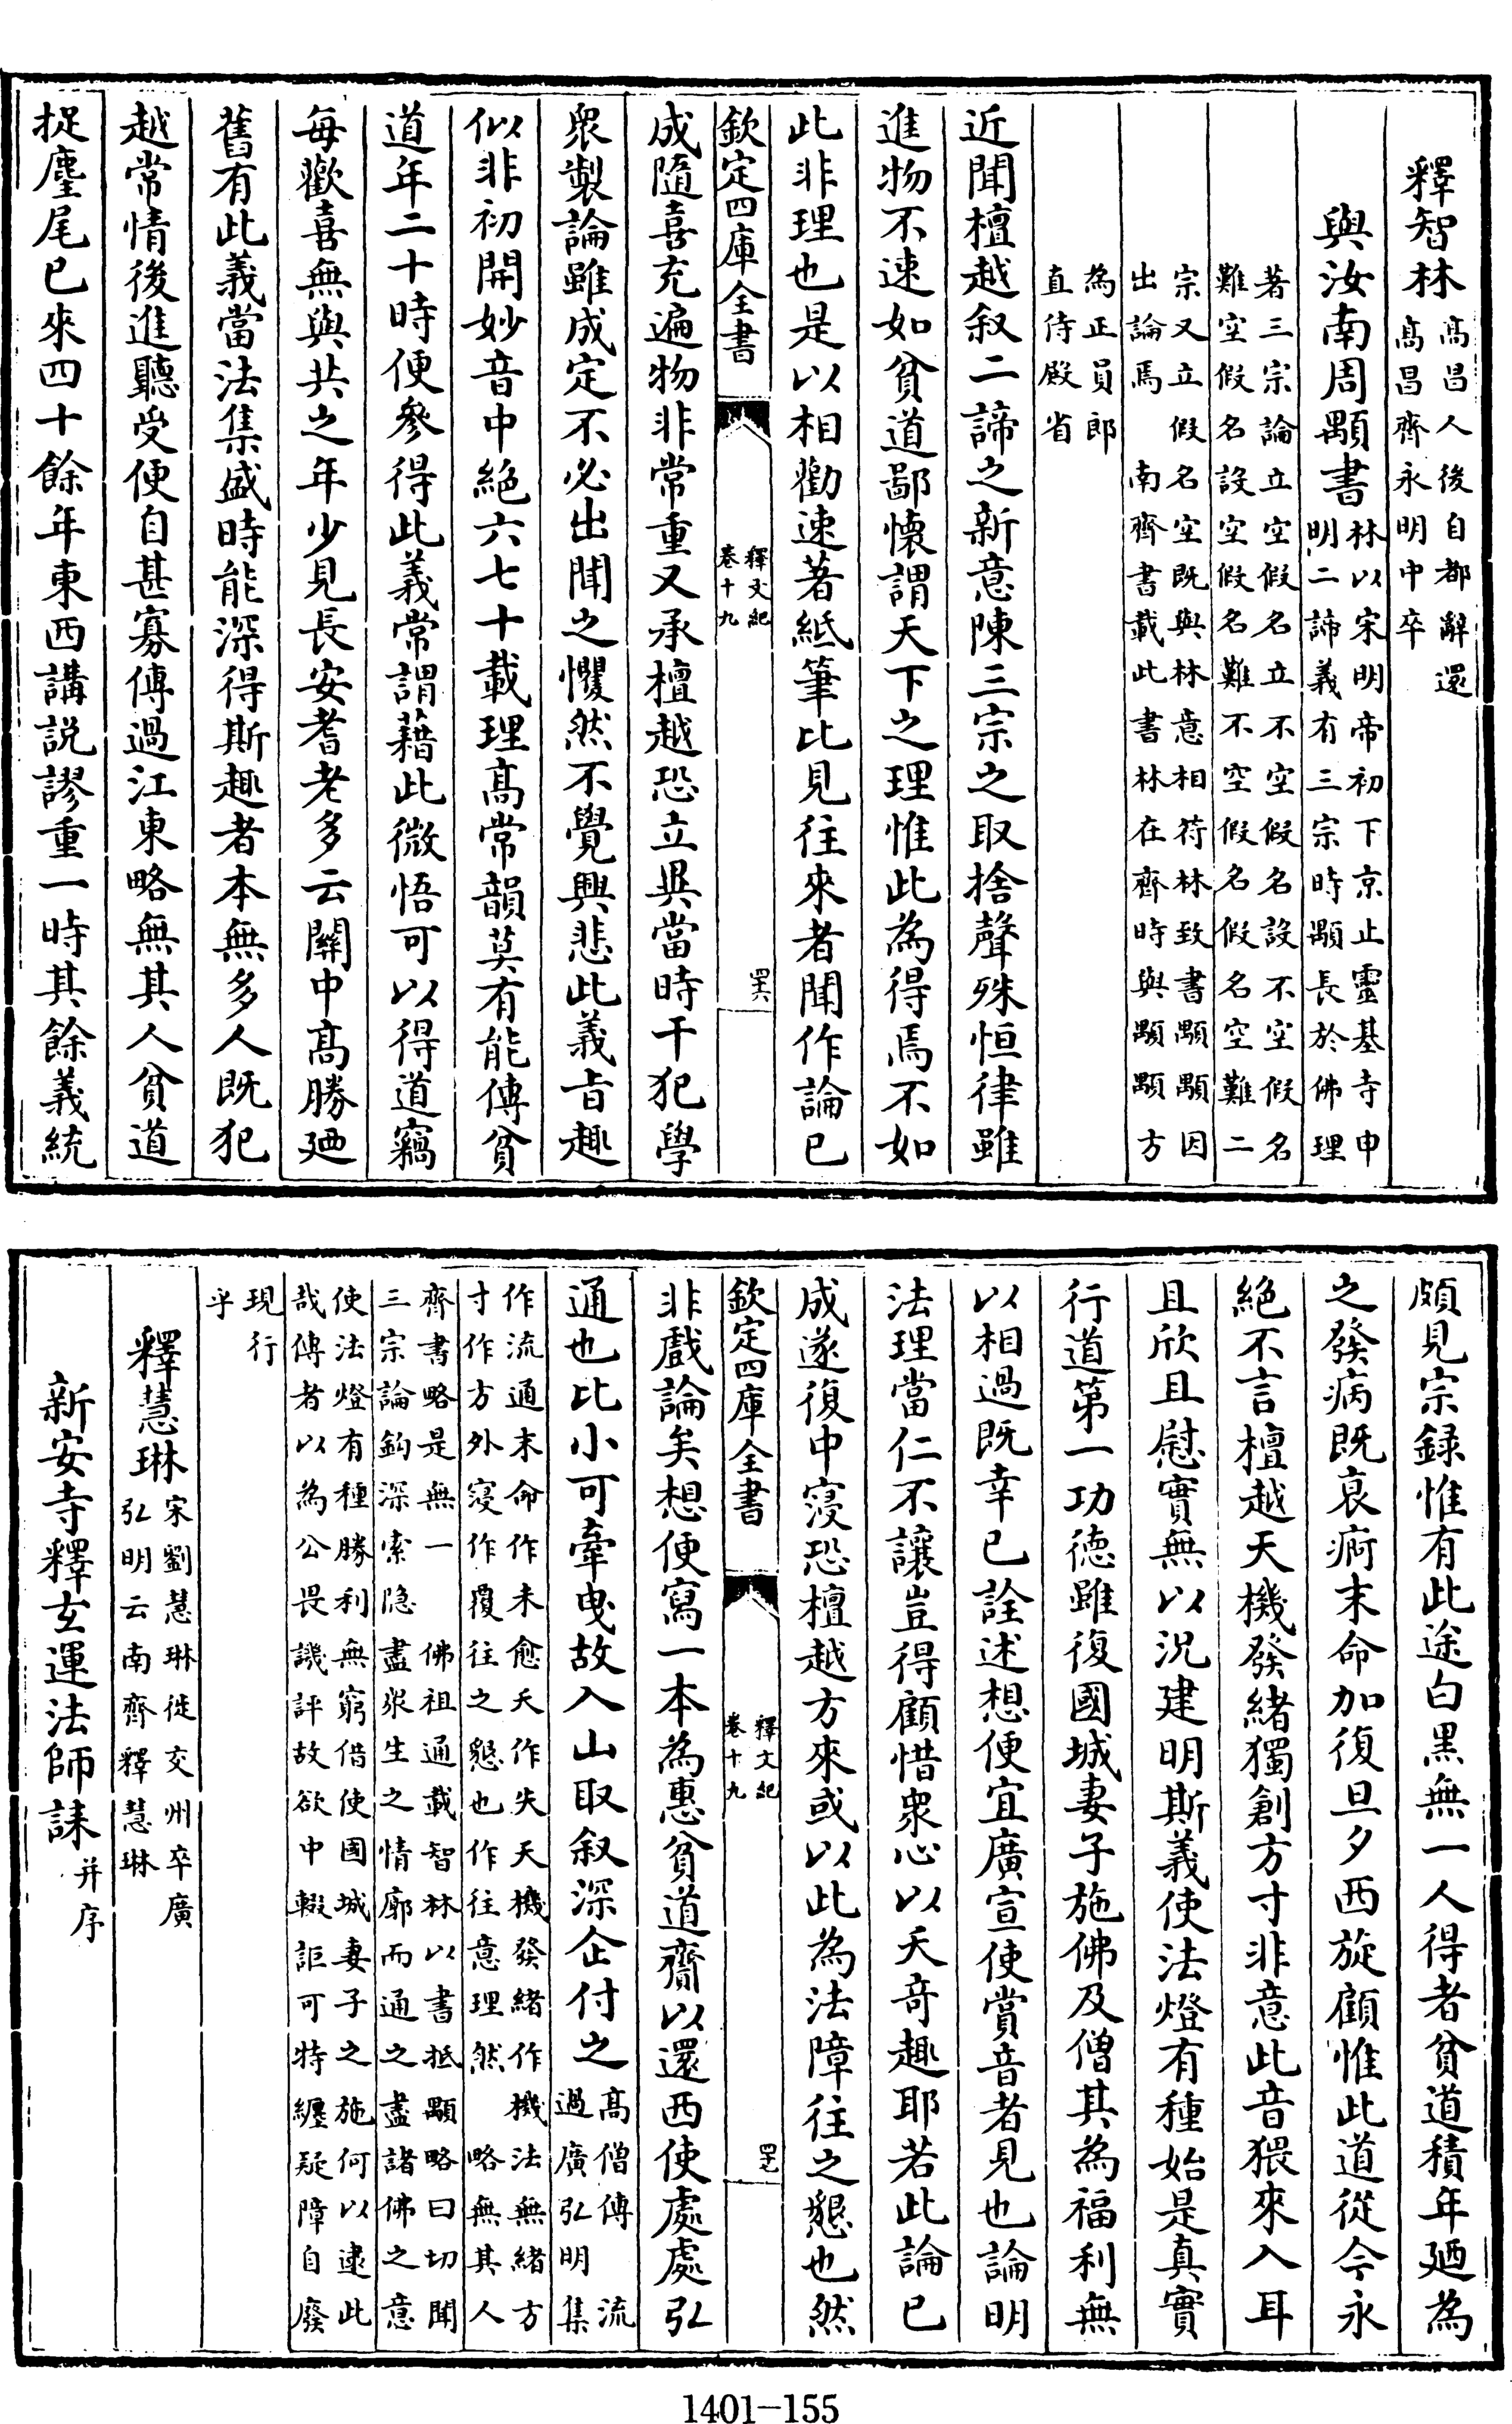 釋智林高昌人後自都辭還高昌齊永明中卒
與汝南周顒書林以宋明帝初下京止靈基寺申明二諦義有三宗時顒長於佛理
著三宗論立空假名立不空假名設不空假名難空假名設空假名難不空假名假名空難二
宗又立假名空既與林意相符林致書顒顒因出論焉 南齊書載此書林在齊時與顒顒方
為正員郎直侍殿省
近聞檀越叙二諦之新意陳三宗之取捨聲殊恒律雖
進物不速如貧道鄙懷謂天下之理惟此為得焉不如
此非理也是以相勸速著紙筆比見往來者聞作論已
欽定四庫全書 釋文紀卷十九 四六
成隨喜充遍物非常重又承檀越恐立異當時干犯學
衆製論雖成定不必出聞之懼然不覺興悲此義旨趣
似非初開妙音中絶六七十載理高常韻莫有能傳貧
道年二十時便參得此義常謂藉此微悟可以得道竊
每歡喜無與共之年少見長安耆老多云關中高勝廼
舊有此義當法集盛時能深得斯趣者本無多人既犯
越常情後進聽受便自甚寡傳過江東略無其人貧道
捉麈尾已來四十餘年東西講説謬重一時其餘義統
頗見宗録惟有此途白黑無一人得者貧道積年廼為
之發病既哀痾末命加復旦夕西旋顧惟此道從今永
絶不言檀越天機發緒獨創方寸非意此音猥來入耳
且欣且慰實無以況建明斯義使法燈有種始是真實
行道第一功德雖復國城妻子施佛及僧其為福利無
以相過既幸已詮述想便宜廣宣使賞音者見也論明
法理當仁不讓豈得顧惜衆心以夭奇趣耶若此論已
成遂復中寢恐檀越方來或以此為法障往之懇也然
欽定四庫全書 釋文紀卷十九 四七
非戲論矣想便寫一本為惠貧道齎以還西使處處弘
通也比小可牽曳故入山取叙深企付之高僧傳 流過廣弘明集
作流通末命作未愈夭作失天機發緒作機法無緒方寸作方外寢作覆往之懇也作往意理然 略無其人
齊書略是無一 佛祖通載智林以書抵顒略曰切聞三宗論鈎深索隐盡衆生之情廓而通之盡諸佛之意
使法燈有種勝利無窮借使國城妻子之施何以逮此哉傳者以為公畏譏評故欲中輟詎可特纏疑障自廢
現行乎
釋慧琳宋劉慧琳徙交州卒廣弘明云南齊釋慧琳
新安寺釋玄運法師誄并序
1401-155